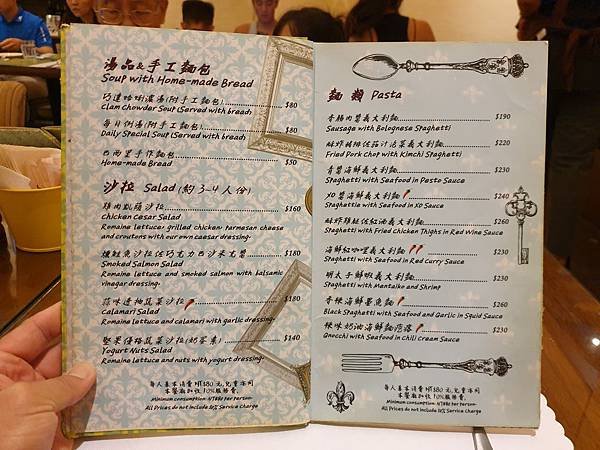 湯品&手工麵包
Soup with Home-made Bread
巧達蛤蜊濃湯(附手工麵包) $80
Clam chowder Soup (Served with bread)
每日例湯(附手工麵包) $80
Daily Special Soup (Served with bread)
巴西里手作麵包 $50
Home-made Bread
沙拉 Salad (約3-4人份)
雞肉凱薩沙拉 $160
Chicken Cesar Salad
Romaine lettuce, grilled chicken, parmesan cheese
and croutons with our own caesar dressing.
煙鮭魚沙拉佐巧克力巴沙米克醬 $180
Smoked Salmon Salad
Romaine lettuce and smoked salmon with balsamic
vinegar dressing.
蒜味透抽蔬菜沙拉 $180
Calamari Salad
Romaine lettuce and calamari with garlic dressing.
堅果優格蔬菜沙拉(奶蛋素) $140
Yogurt Nuts Salad
Romaine lettuce and nuts with yogurt dressing.
每人基本消費NT$80元,兒童亦同
本餐廳加收10%服務費.
Minimum consumption: NT$80 Per person.
All Prices do not include 10% Service Charge
麵類 Pasta
香腸肉醬義大利麵 $190
Sausage with Bolognese Spaghetti
酥炸豬排佐茄汁泡菜義大利麵 $220
Fried Pork Chop with Kimchi Spaghetti
青醬海鮮義大利麵 $230
Spaghetti with Seafood in Pesto Sauce
XO醬海鮮義大利麵 $240
Spaghettis with Seafood in XO Sauce
酥炸雞腿佐紅酒義大利麵 $260
Spaghetti with Fried Chicken Thighs in Red Wine Sauce
海鮮紅咖哩義大利麵 $230
Spaghetti with Seafood in Red Curry Sauce
明太子鮮蝦義大利麵 $230
Spaghetti with Mentaiko and Shrimp
香辣海鮮墨魚麵 $260
Black Spaghetti with Seafood and Garlic in Squid Sauce
辣味奶油海鮮麵疙瘩 $230
Gnocchi with Seafood in Chili Cream Sauce
每人基本消費NT$80元,兒童亦同
本餐廳加收10%服務費.
Minimum consumption: NT$80 Per person.
All Prices do not include 10% Service Charge